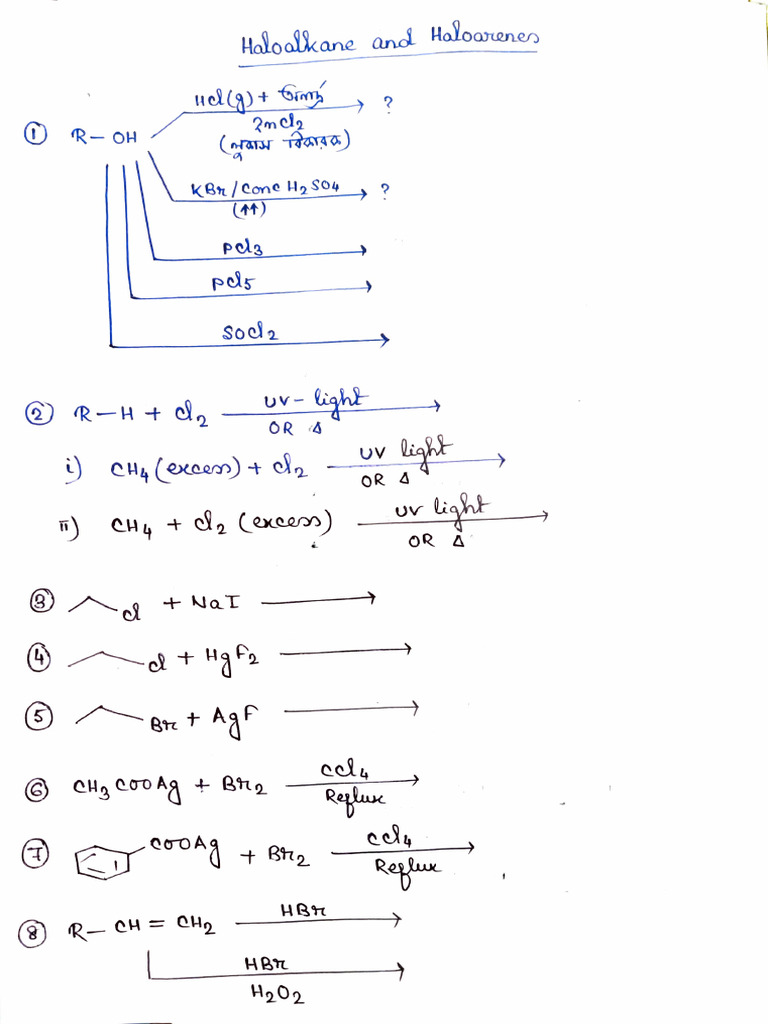 Haloalkane and Haloarenes
① R – OH
HCl(g) + অনার্দ্র → ?
ZnCl2
(লুকাস বিকারক)
KBr/Conc H2SO4 → ?
(↑↑)
PCl3 →
PCl5 →
SOCl2 →
② R – H + Cl2 UV – light →
OR Δ
i) CH4 (excess) + Cl2 UV light →
OR Δ
ii) CH4 + Cl2 (excess) UV light →
OR Δ
③ Cl + NaI →
④ Cl + HgF2 →
⑤ Br + AgF →
⑥ CH3COOAg + Br2 CCl4 →
Reflux
⑦ COOAg + Br2 CCl4 →
Reflux
⑧ R – CH = CH2 HBr →
HBr →
H2O2